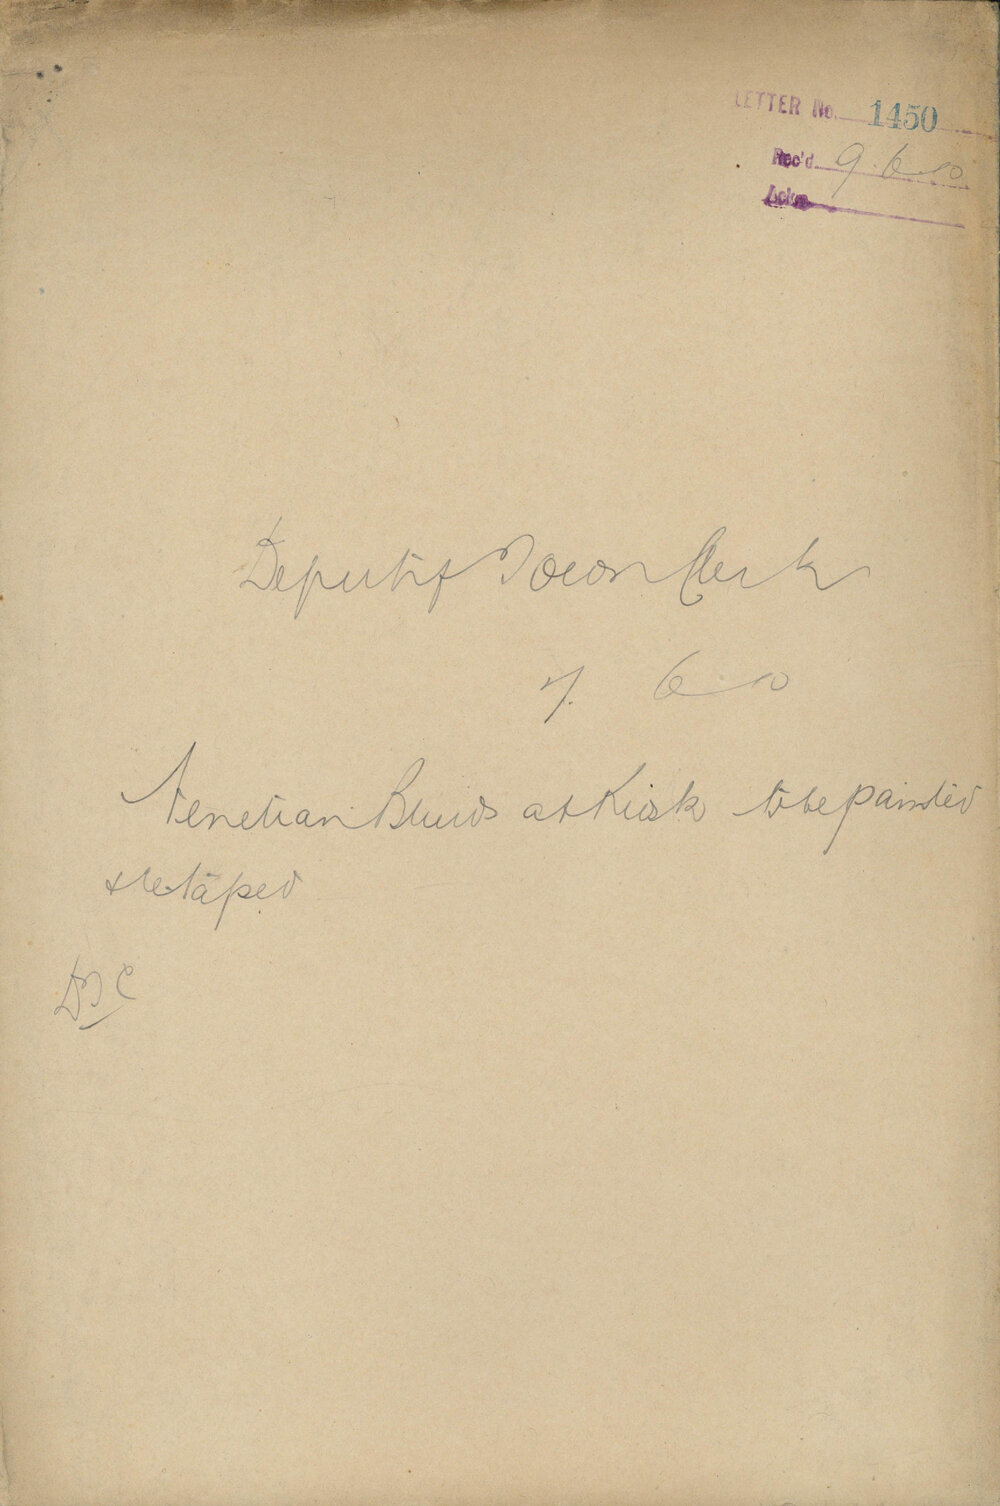 LETTER No. 1450
Rec'd 9.6.10
Ackn
Deputy Town Clerk
7. 6 10
Venetian Blinds at Kiosk to be painted
& retaped